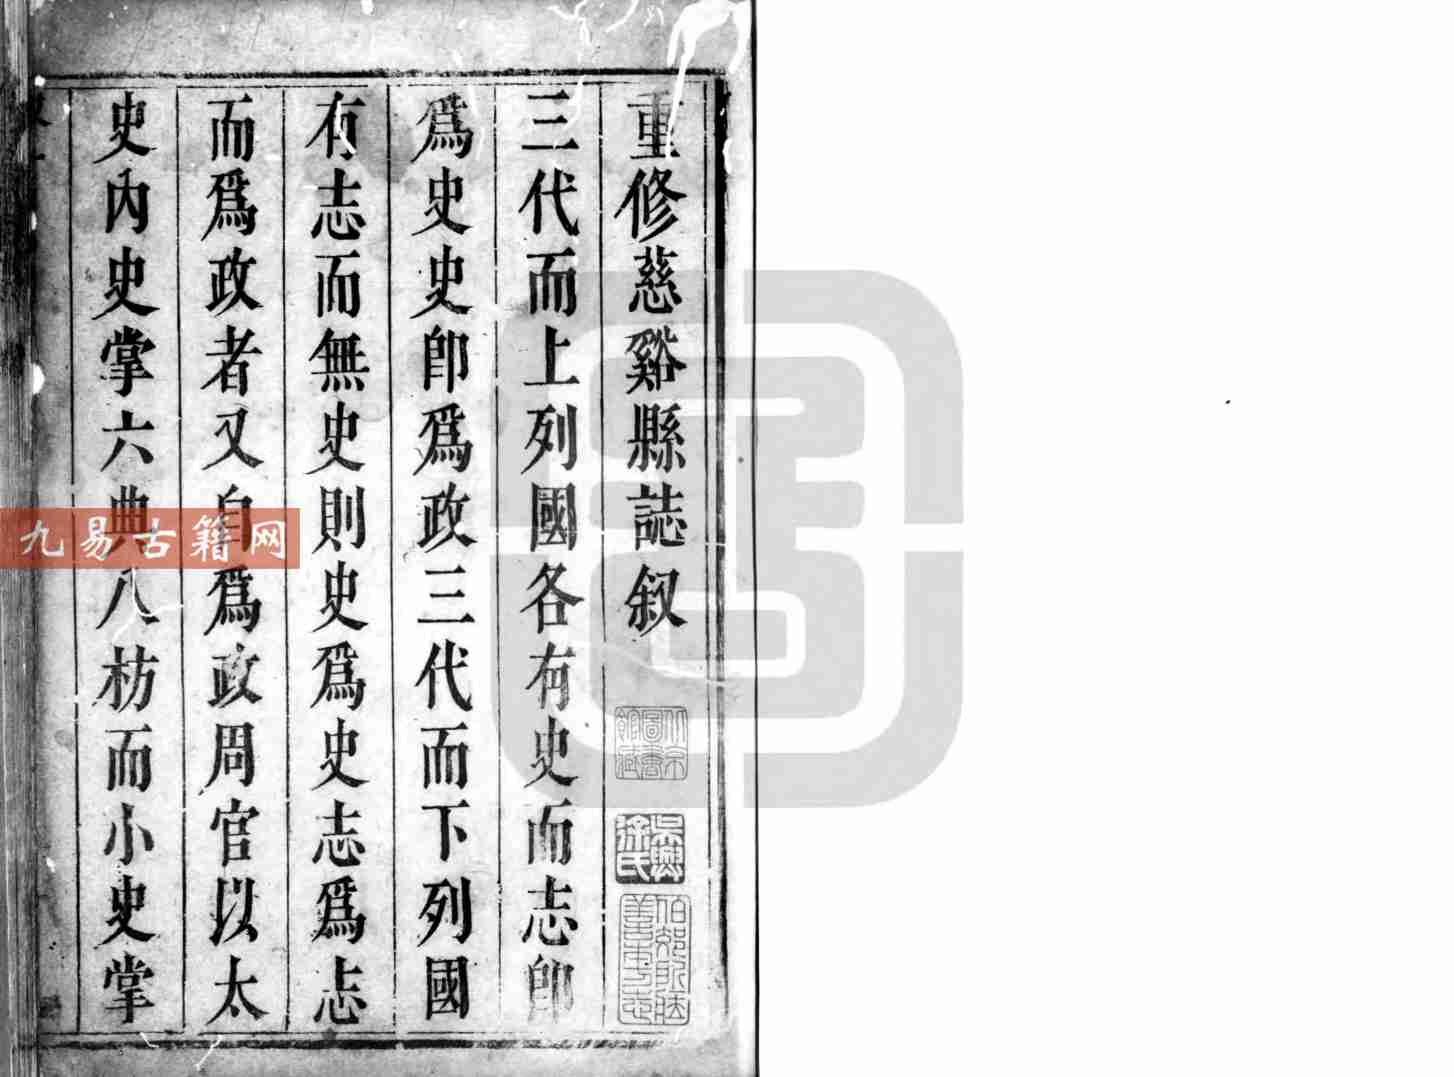 重修慈谿縣誌叙
三代而上列國各有史而志即
爲史史卽爲政三代而下列國
有志而無史則史爲史志爲志
而爲政者又自爲政周官以太
史內史掌六典八枋而小史掌
吳興
徐氏
九易古籍网